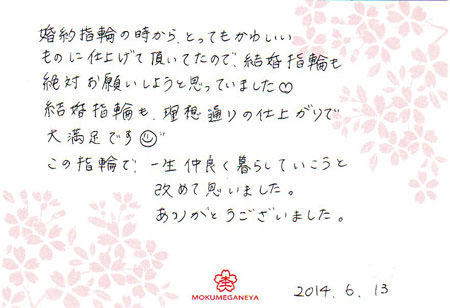 婚約指輪の時から、とってもかわいい
ものに仕上げて頂いてたので、結婚指輪も
絶対お願いしようと思っていました♡
結婚指輪も、理想通りの仕上がりで
大満足です☺
この指輪で、一生仲良く暮らしていこうと
改めて思いました。
ありがとうございました。
MOKUMEGANEYA
2014. 6. 13